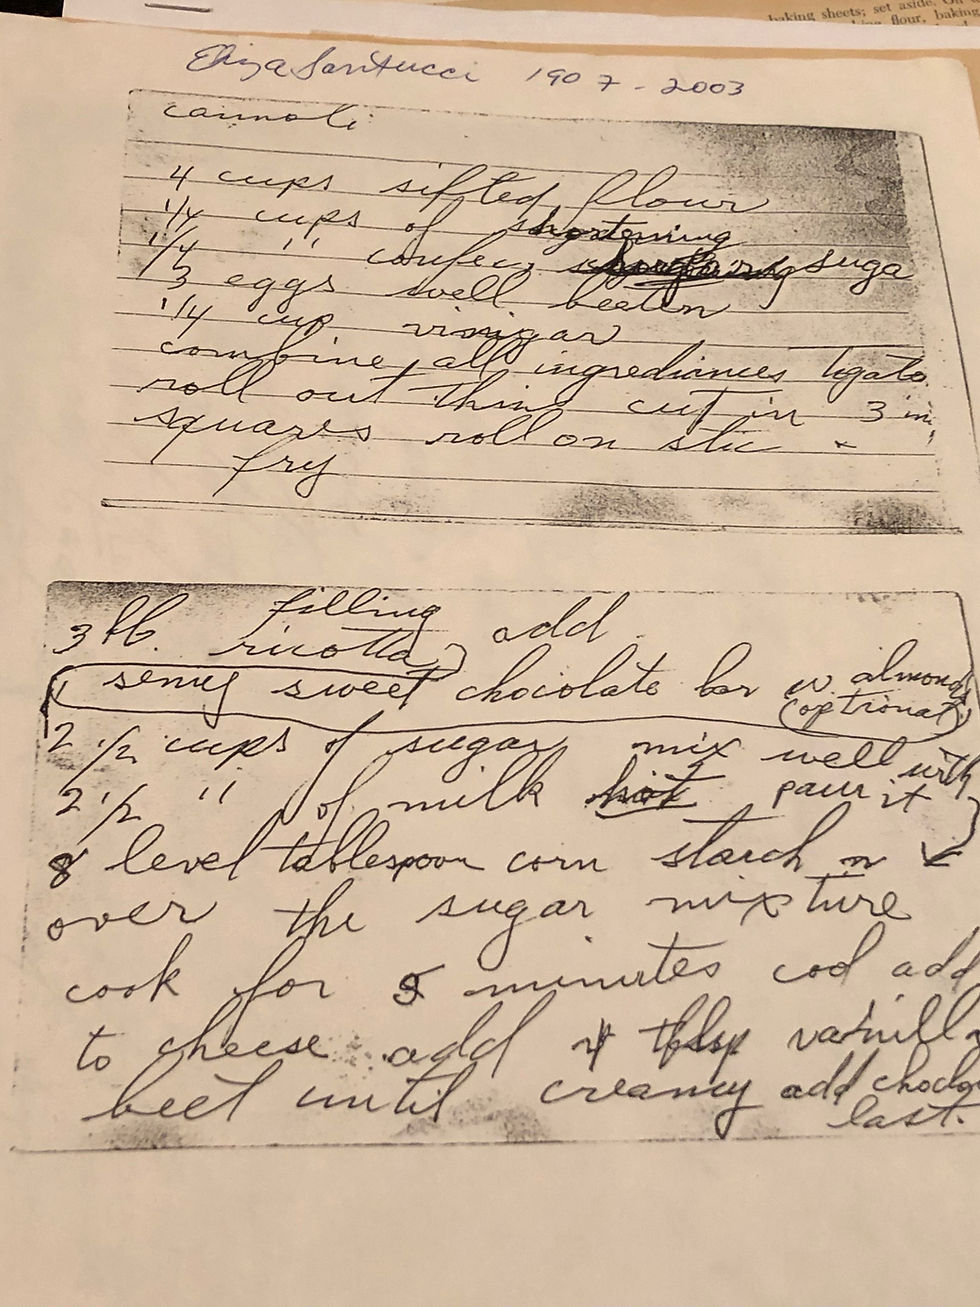 baking sheets; set aside. On
flour, baking
Eliza Santucci 1907 - 2003
cannoli
4 cups sifted flour
1/4 cups of shortening
1/4 " confec. suga
3 eggs well beaten
1/4 cup vinigar
combine all ingrediances togate
roll out thin cut in 3 in
squares roll on stic
fry
filling
3 lb. ricotta add
1 semy sweet chocolate bar w. almonds
(optional)
2 1/2 cups of sugar mix well with
2 1/2 " of milk hot paur it
8 level tablespoon corn starch
over the sugar mixture
cook for 5 minutes cool add
to cheese add vanilla
beet until creamy add choco
last.